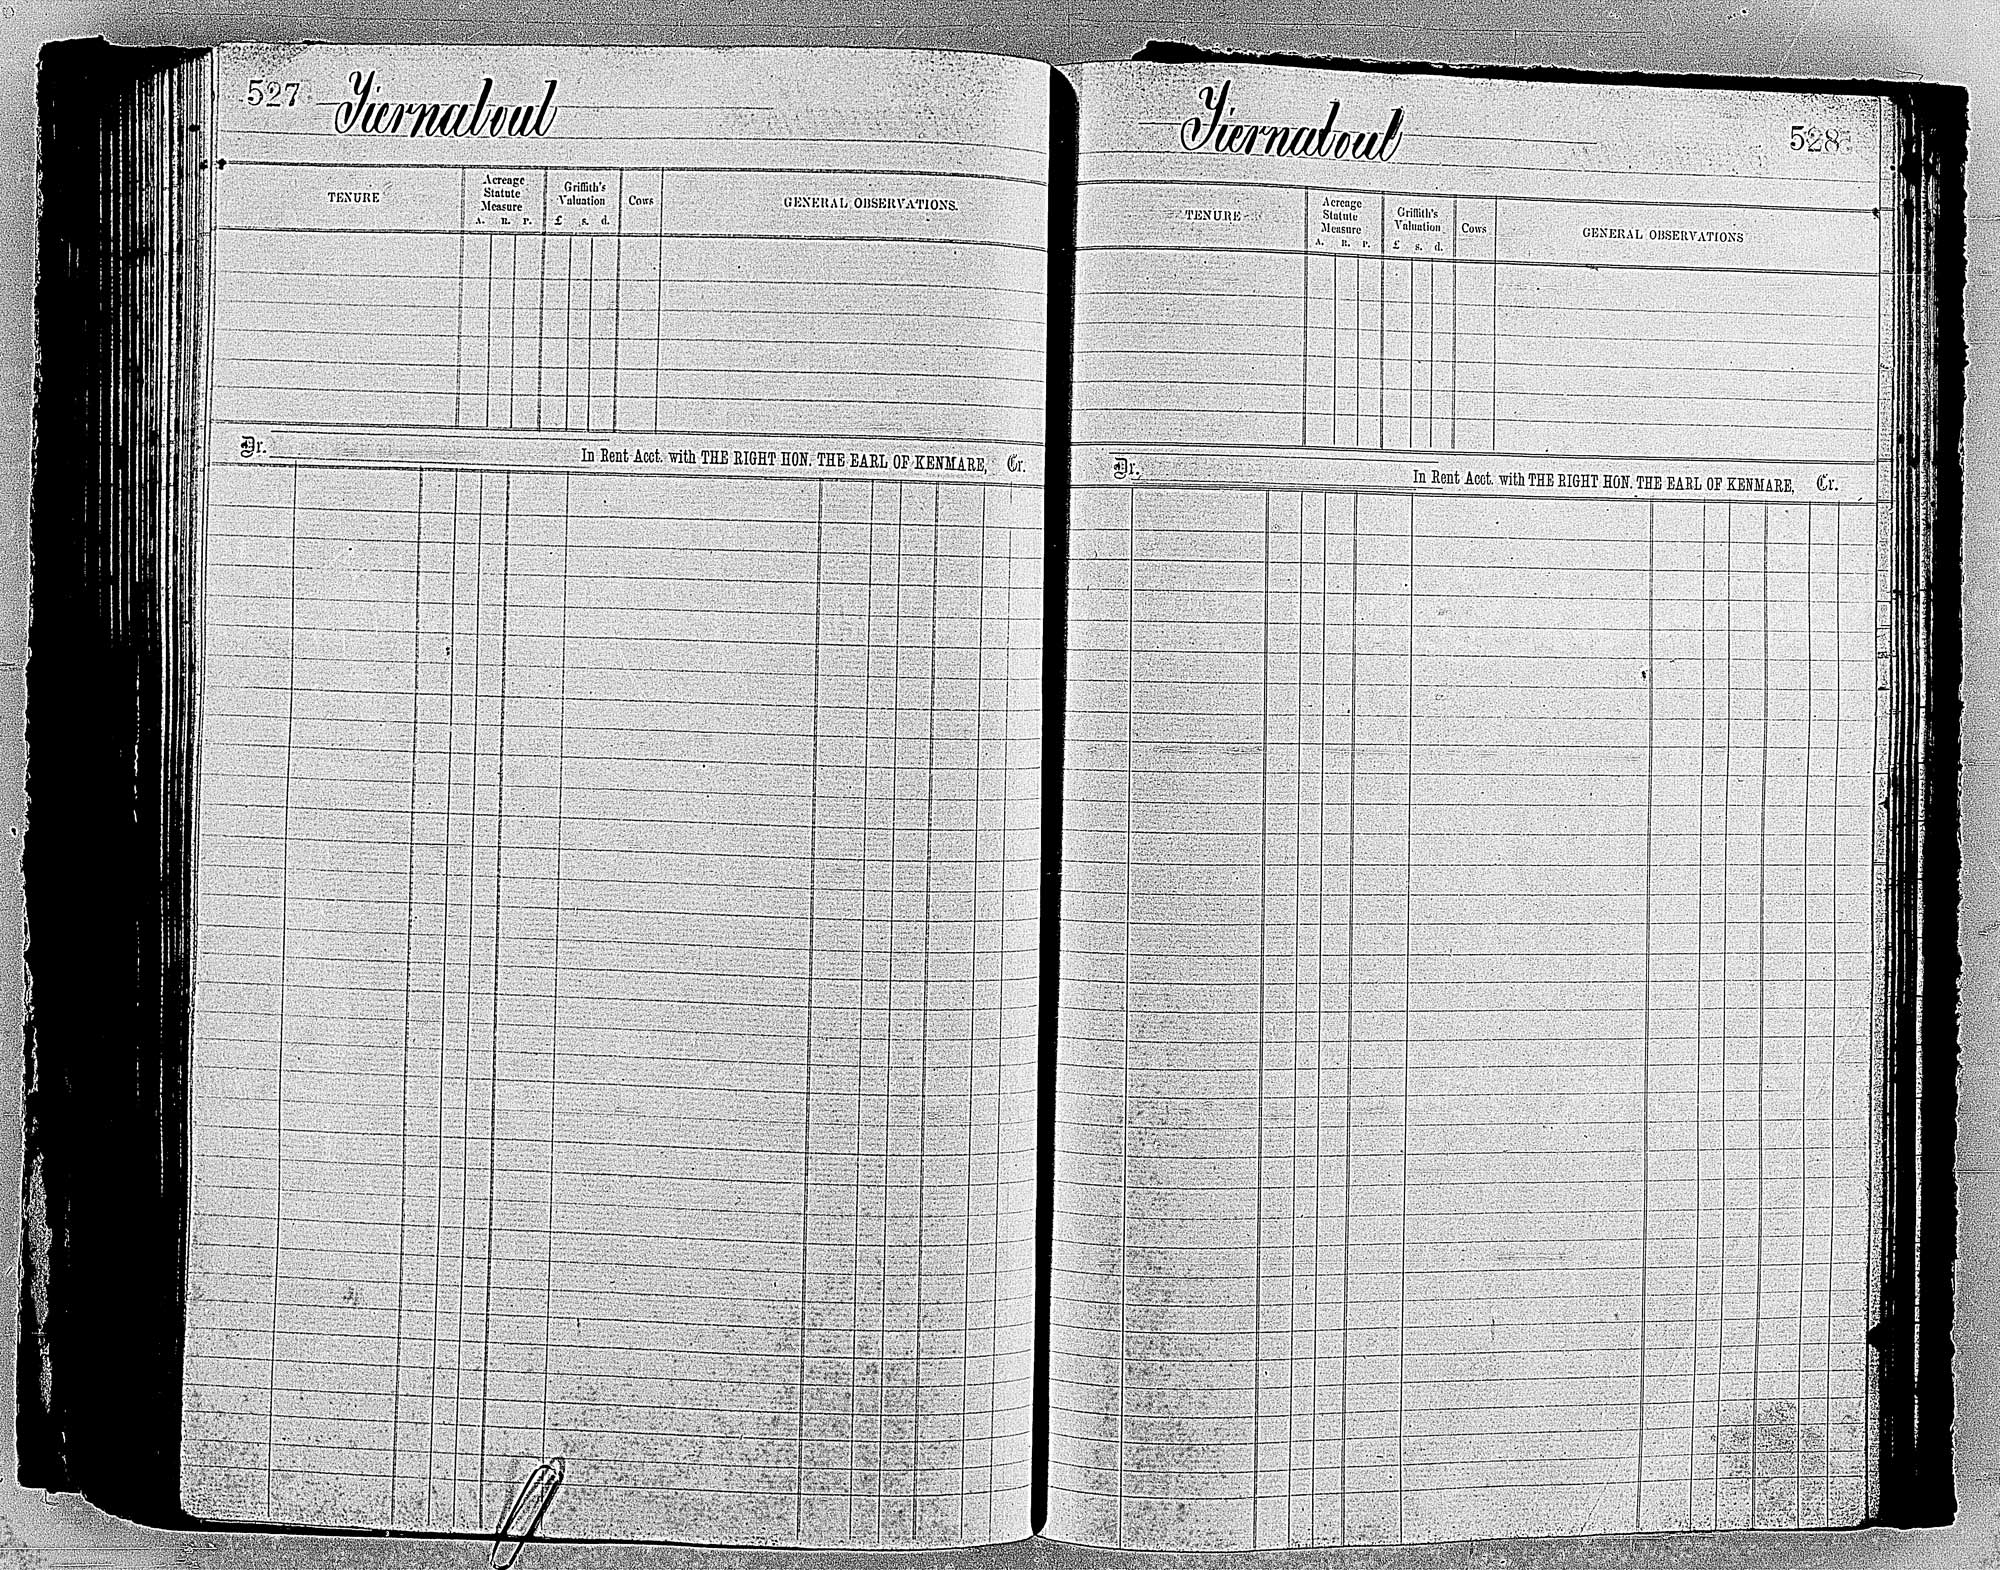 527 Tiernaboul
TENURE
Acreage Statute Measure
A. R. P.
Griffith's Valuation
£ s. d.
Cows
GENERAL OBSERVATIONS.
Dr.
In Rent Acct. with THE RIGHT HON. THE EARL OF KENMARE, Cr.
Tiernaboul 528
TENURE
Acreage Statute Measure
A. R. P.
Griffith's Valuation
£ s. d.
Cows
GENERAL OBSERVATIONS
Dr.
In Rent Acct. with THE RIGHT HON. THE EARL OF KENMARE, Cr.